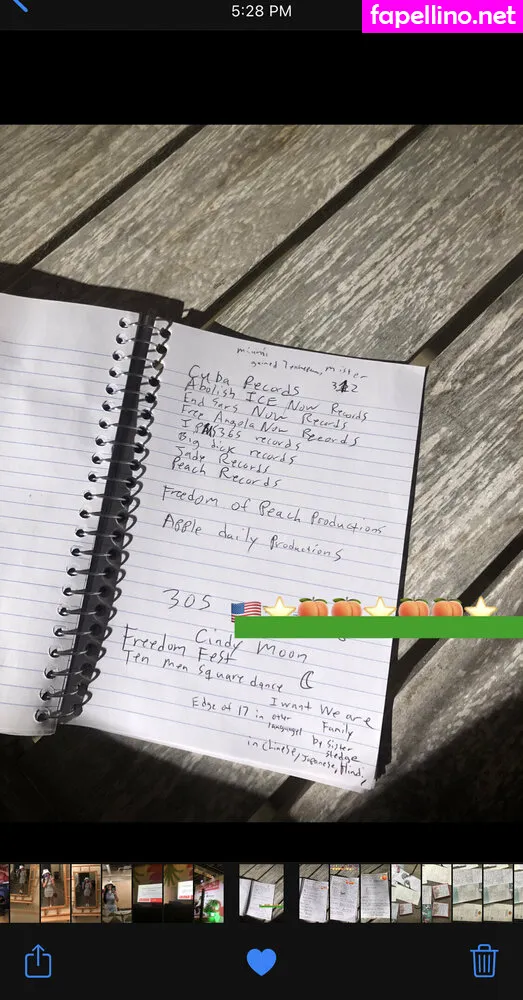 5:28 PM
fapellino.net
miami
gained 7 Mister
312
Cuba Records
Abolish ICE Now Records
End Sars Now Records
Free Angela Now Records
365 records
Big dick records
Jade Records
Peach Records
Freedom of Peach Productions
Apple daily Productions
305 🇺🇸⭐🍑🍑⭐🍑🍑⭐
Cindy Moon
Freedom Fest
Ten men square dance
I want We are
Edge of 17 in other Family
languages by Sister
sledge
in Chinese, Japanese, Hindi,